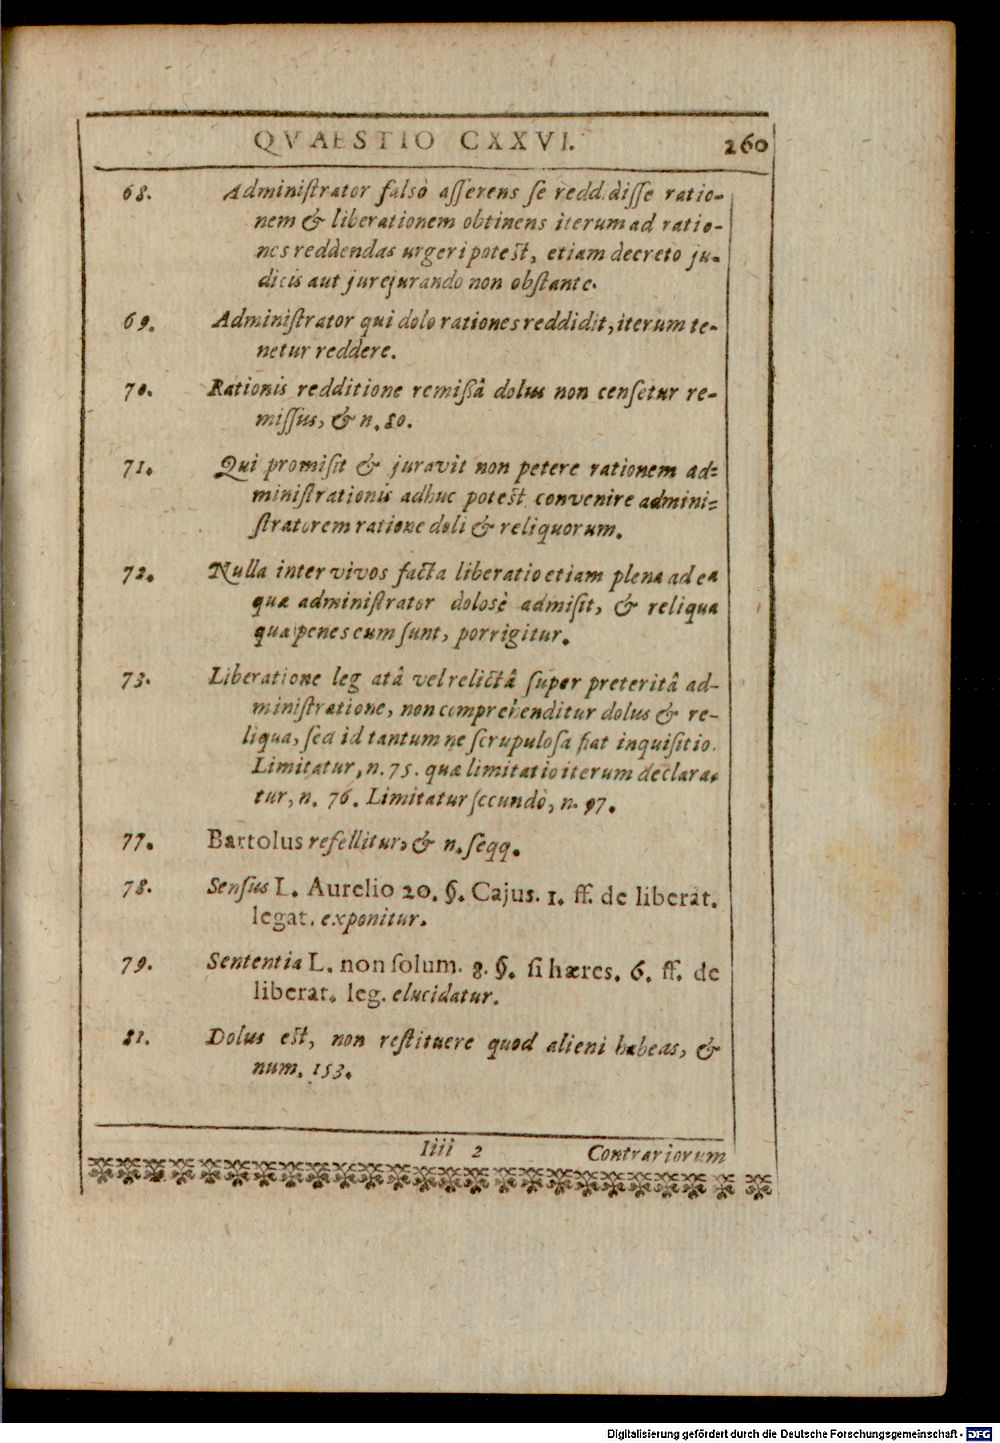 QVAESTIO CXXVI. 260
68. Adminiſtrator falsò aſſerens ſe reddidiſſe ratio-
nem & liberationem obtinens iterum ad ratio-
nes reddendas urgeri poteſt, etiam decreto ju-
dicis aut jurejurando non obſtante.
69. Adminiſtrator qui dolo rationes reddidit, iterum te-
netur reddere.
70. Rationis redditione remißâ dolus non cenſetur re-
miſſus, & n. 80.
71. Qui promiſit & juravit non petere rationem ad-
miniſtrationis adhuc poteſt convenire admini-
ſtratorem ratione doli & reliquorum.
72. Nulla inter vivos facta liberatio etiam plena ad ea
quæ adminiſtrator dolosè admiſit, & reliqua
quæ penes eum ſunt, porrigitur.
73. Liberatione leg atâ vel relictâ ſuper preteritâ ad-
miniſtratione, non comprehenditur dolus & re-
liqua, ſed id tantum ne ſcrupuloſa fiat inquiſitio.
Limitatur, n. 75. quæ limitatio iterum declara-
tur, n. 76. Limitatur ſecundò, n. 97.
77. Bartolus refellitur, & n. ſeqq.
78. Senſus L. Aurelio 20. §. Cajus. 1. ff. de liberat.
legat. exponitur.
79. Sententia L. non ſolum. 8. §. ſi hæres. 6. ff. de
liberat. leg. elucidatur.
81. Dolus eſt, non reſtituere quod alieni habeas, &
num. 153.
Iiii 2 Contrariorum
Digitalisierung gefördert durch die Deutsche Forschungsgemeinschaft - DFG